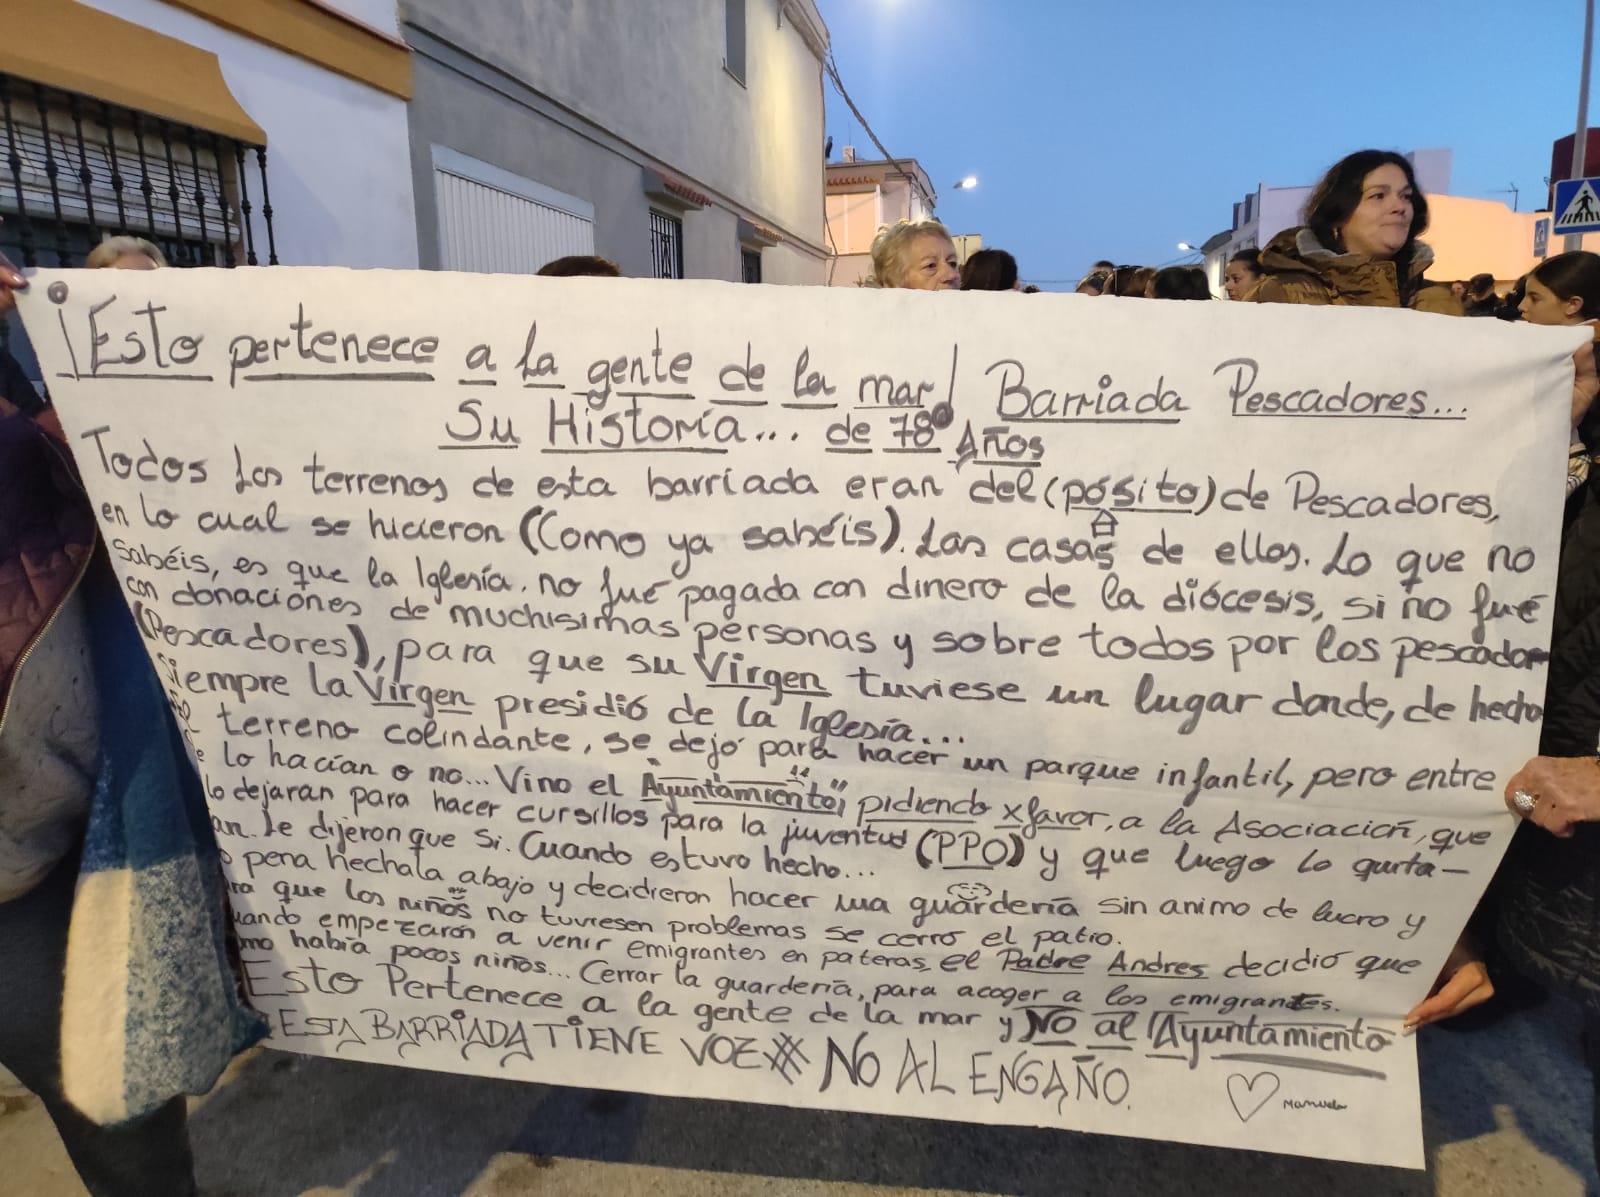 ¡Esto pertenece a la gente de la mar! Barriada Pescadores...
Su Historia... de 78º Años
Todos los terrenos de esta barriada eran del (pósito) de Pescadores,
en lo cual se hicieron (Como ya sabéis). Las casas de ellos. Lo que no
sabéis, es que la Iglesía. no fué pagada con dinero de la diócesis, si no fué
con donaciónes de muchisimas personas y sobre todos por los pescador
(Pescadores), para que su Virgen tuviese un lugar donde, de hecho
siempre la Virgen presidió de la Iglesía...
El terreno colindante, se dejó para hacer un parque infantil, pero entre
lo hacían o no... Vino el "Ayuntamiento", pidiendo x favor, a la Asociación, que
lo dejaran para hacer cursillos para la juventud (PPO) y que luego lo quita-
an. Le dijeron que si. Cuando estuvo hecho...
pena hechala abajo y decidieron hacer una guardería sin animo de lucro y
ra que los niños no tuviesen problemas se cerró el patio.
uando empezarón a venir emigrantes en pateras, el Padre Andres decidió que
mo había pocos niños... Cerrar la guardería, para acoger a los emigrantes.
Esto Pertenece a la gente de la mar y NO al Ayuntamiento
ESTA BARRIADA TIENE VOZ # NO AL ENGAÑO.
Manuela